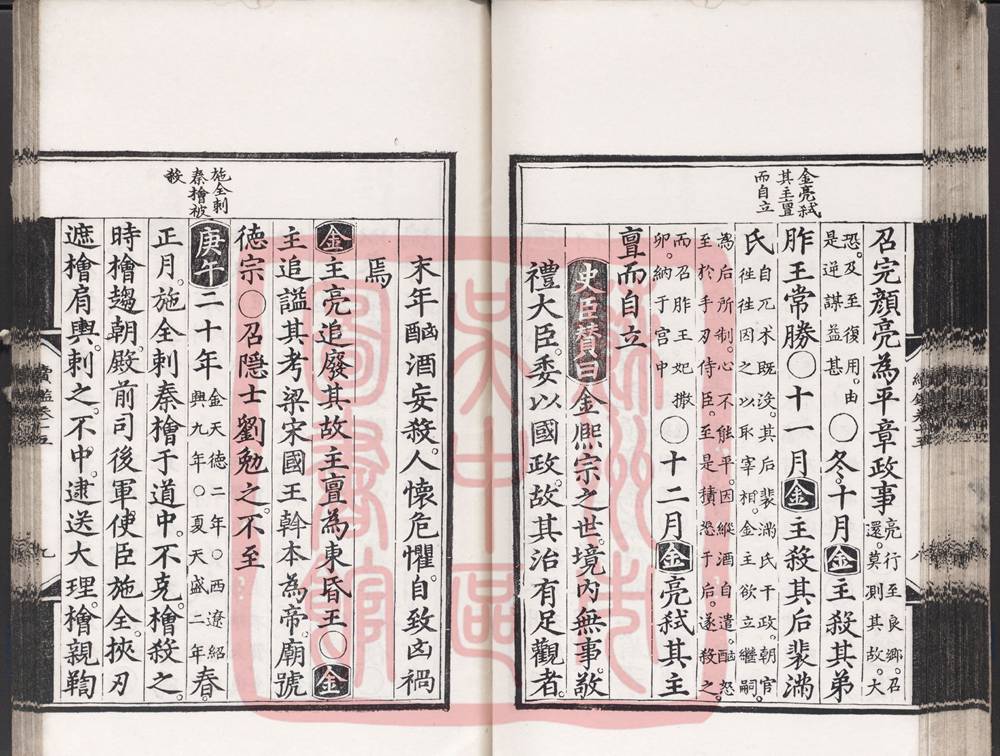 金亮弑
其主亶
而自立
召完顏亮為平章政事亮行至良鄉召
還莫測其故大
恐及至復用由
是逆謀益甚○冬十月金主殺其弟
胙王常勝○十一月金主殺其后裴滿
氏自兀术既没其后裴滿氏干政朝官
往往因之以取宰相金主欲立繼嗣
為后所制心不能平因縱酒自遣酗怒
至於手刃侍臣至是積怒于后遂殺之
而召胙王妃撒
卯納于宫中○十二月金亮弑其主
亶而自立
史臣贊曰金熙宗之世境内無事敬
禮大臣委以國政故其治有足觀者
末年酗酒妄殺人懷危懼自致凶禍
焉
金主亮追廢其故主亶為東昏王○金
主追謚其考梁宋國王幹本為帝廟號
德宗○召隱士劉勉之不至
施全刺
秦檜被
殺
庚午二十年金天德二年○西遼紹
興九年○夏天盛二年春
正月施全刺秦檜于道中不克檜殺之
時檜趨朝殿前司後軍使臣施全挾刃
遮檜肩輿刺之不中逮送大理檜親鞫